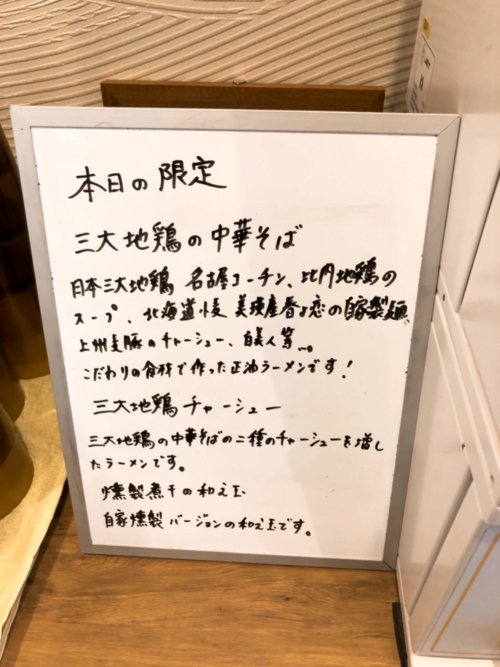 本日の限定
三大地鶏の中華そば
日本三大地鶏 名古屋コーチン、比内地鶏の
スープ、北海道 美瑛産春よ恋の自家製麺
上州麦豚のチャーシュー、白美人等…。
こだわりの食材で作った正油ラーメンです!
三大地鶏チャーシュー
三大地鶏の中華そばの二種のチャーシューを増し
たラーメンです。
燻製煮干の和え玉
自家燻製バージョンの和え玉です。